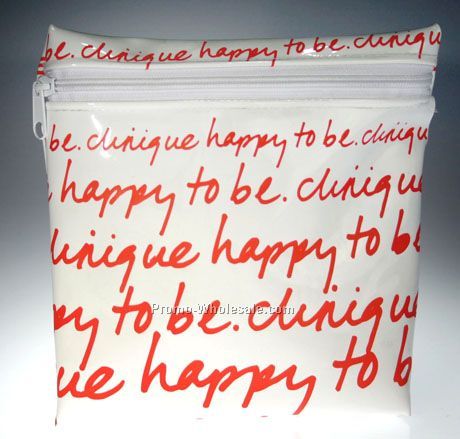 be. clinique happy to be. clinique
be. clinique happy to be. clinique
happy to be. clinique
clinique happy to be
Promo-Wholesale.com
py to be. clinique
que happy to b